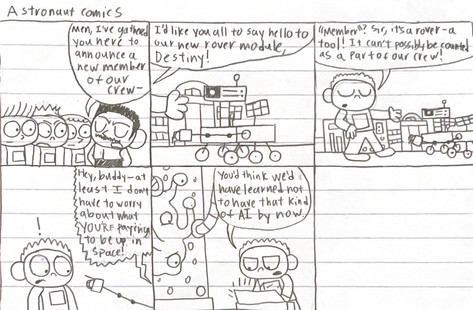 Astronaut comics
Men, I've gathered
you here to
announce a
new member
of our
crew-
I'd like you all to say hello to
our new rover module,
Destiny!
"Member"? Sir, it's a rover-a
tool! It can't possibly be counted
as a part of our crew!
!
Hey, buddy-at
least I don't
have to worry
about what
YOU'RE paying
to be up in
space!
You'd think we'd
have learned not
to have that kind
of AI by now.